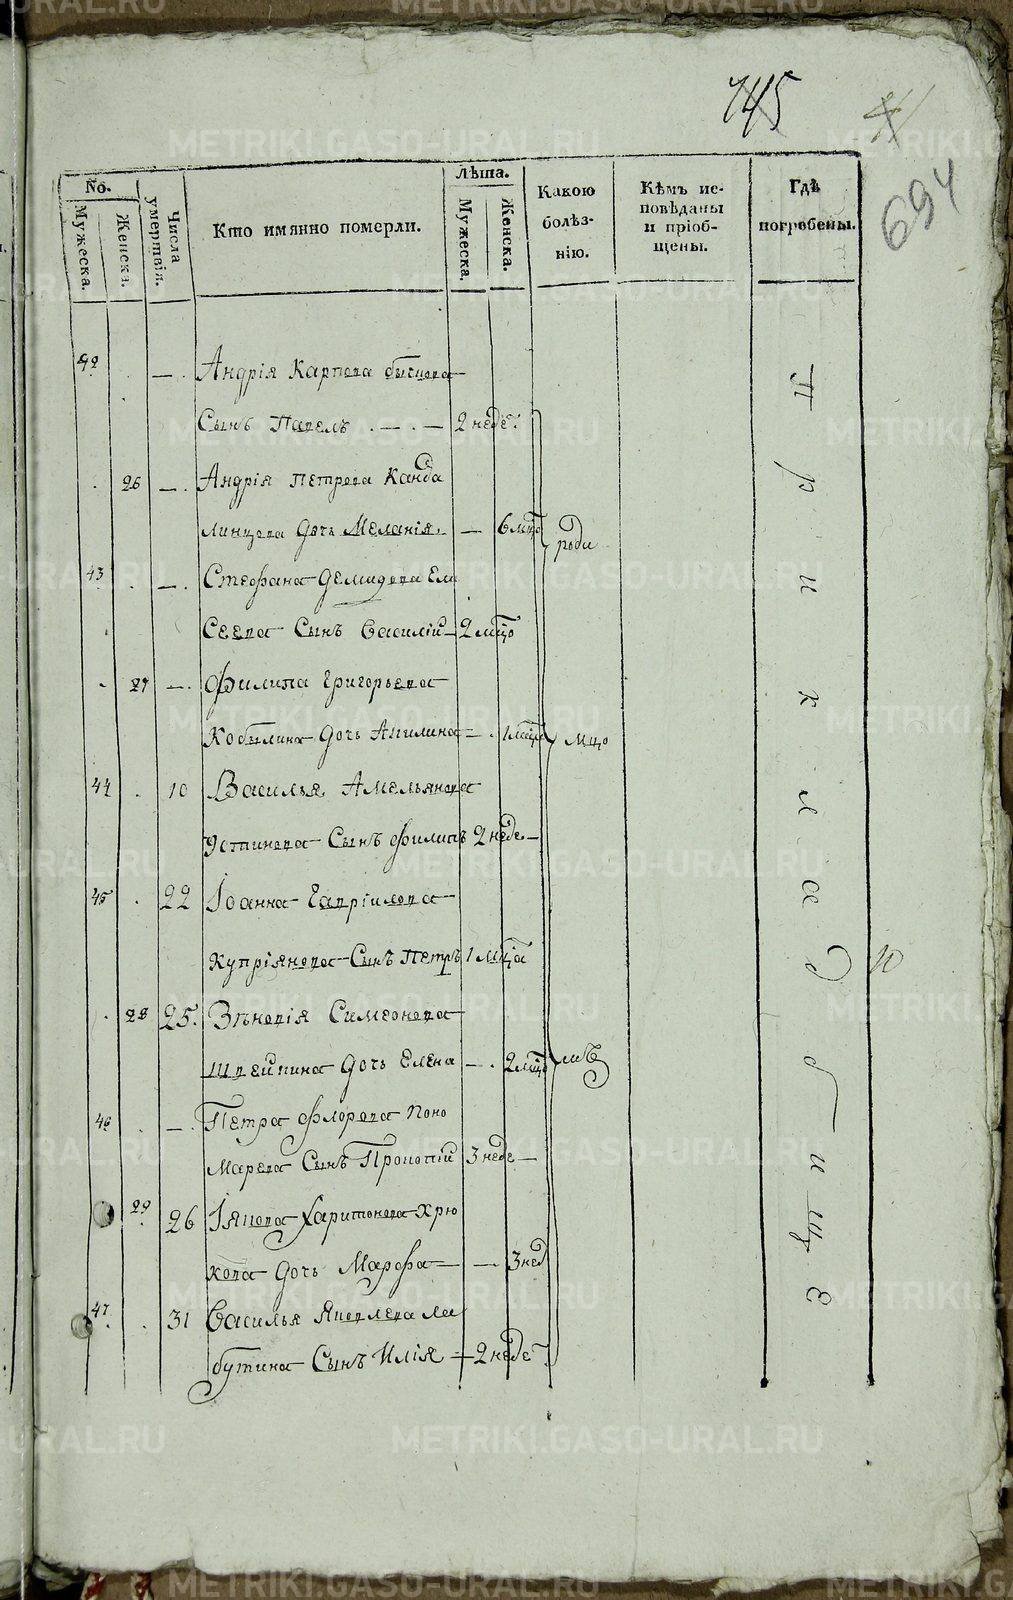 745
41
694
No.
Мужеска.
Женска.
Числа умертвія.
Кто имянно померли.
Лѣта.
Мужеска.
Женска.
Какою болѣз-нію.
Кѣмъ ис-повѣданы и пріоб-щены.
Гдѣ погребены.
42 — Андрія Карпова
Сынъ Павелъ — 2 неде.
26 — Андрія ПетроваКанда
линцова дочь Меланія — 6 мцо
роди
43 — Стефана Демидова Ели
сеева Сынъ Василій — 2 мцо
27 — Филипа Григорьева
Кобылина дочь Акилина — 1 мцо
мцо
44 10 Василья Амельянова
Устинова Сынъ Филипъ 2 неде —
45 22 Іоанна Гавріилова
Купріянова Сынъ Петръ 1 мцо
28 25. Зѣновія Симеонова
Швейкина дочь Елена — 2 мцо
мъ
46 — Петра Флорова Поно
марева Сынъ Прокопій 3 неде —
29 26 Іякова Харитонова Хрю
кова дочь Марѳа — 3 нед
47 31 Василья Яковлева Ла
бутина Сынъ Илія — 2 неде
При кладбищѣ
10
METRIKI.GASO-URAL.RU